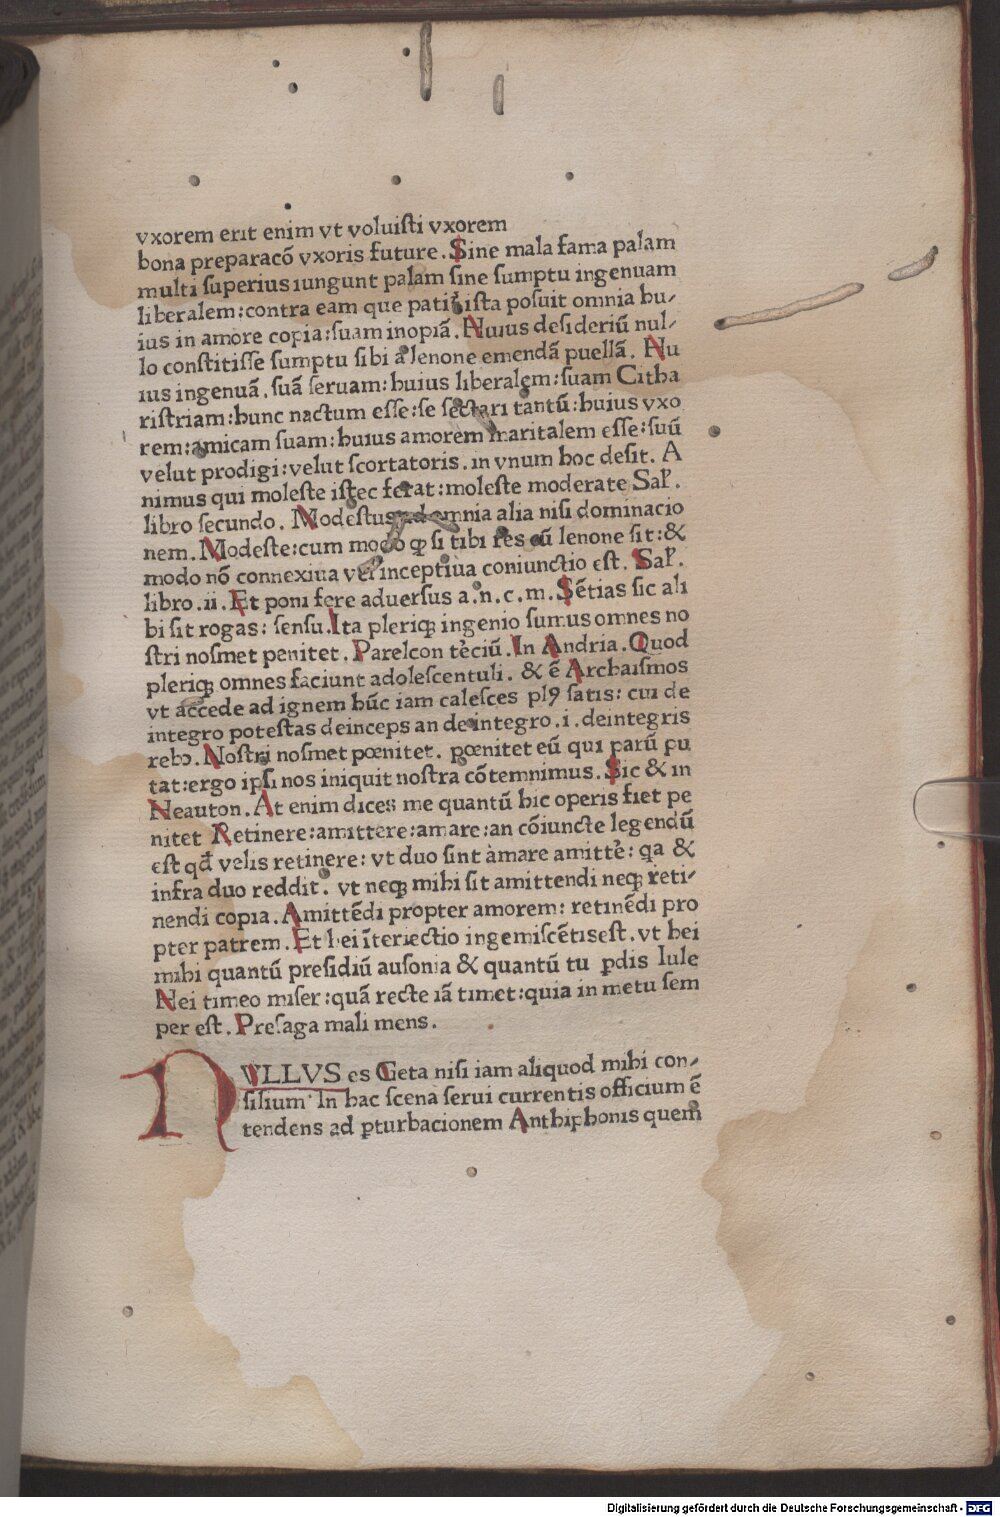 vxorem erit enim vt voluisti vxorem
bona preparacō vxoris future. Sine mala fama palam
multi superius iungunt palam sine sumptu ingenuam
liberalem: contra eam que patit᷑ ista posuit omnia hu⸗
ius in amore copia: suam inopiā. Huius desideriū nul⸗
lo constitisse sumptu sibi a lenone emendā puellā. Hu
ius ingenuā. suā seruam: huius liberalem: suam Citha
ristriam: hunc nactum esse: se sectari tantū: huius vxo
rem: amicam suam: huius amorem maritalem esse: suū
velut prodigi: velut scortatoris. in vnum hoc desit. A
nimus qui moleste istec ferat: moleste moderate Sal̕.
libro secundo. Modestus ad omnia alia nisi dominacio
nem. Modeste: cum modo ꝙ si tibi res cū lenone sit: &
modo nō connexiua vel inceptiua coniunctio est. Sal̕.
libro. ii. Et poni fere aduersus a. n. c. m. Sētias sic ali
bi sit rogas: sensu. Ita pleriqꝫ ingenio sumus omnes no
stri nosmet penitet. Parelcon tēciū. In Andria. Quod
pleriqꝫ omnes faciunt adolescentuli. & ē Archaismos
vt accede ad ignem hūc iam calesces plꝰ satis: cui de
integro potestas deinceps an de integro. i. deintegris
rebꝰ. Nostri nosmet pœnitet. pœnitet eū qui parū pu
tat: ergo ipsi nos iniquit nostra cōtemnimus. Sic & in
Neauton. At enim dices me quantū hic operis fiet pe
nitet Retinere: amittere: amare: an cōiuncte legendū
est qd̄ velis retinere: vt duo sint àmare amittē: qa &
infra duo reddit. vt neqꝫ mihi sit amittendi neqꝫ reti⸗
nendi copia. Amittēdi propter amorem: retinēdi pro
pter patrem. Et hei īteriectio ingemiscētis est. vt hei
mihi quantū presidiū ausonia & quantū tu ꝑdis Iule
Nei timeo miser: quā recte iā timet: quia in metu sem
per est. Presaga mali mens.
NVLLVS es Geta nisi iam aliquod mihi con⸗
silium In hac scena serui currentis officium ē
tendens ad ꝑturbacionem Anthiphonis quem
Digitalisierung gefördert durch die Deutsche Forschungsgemeinschaft - DFG